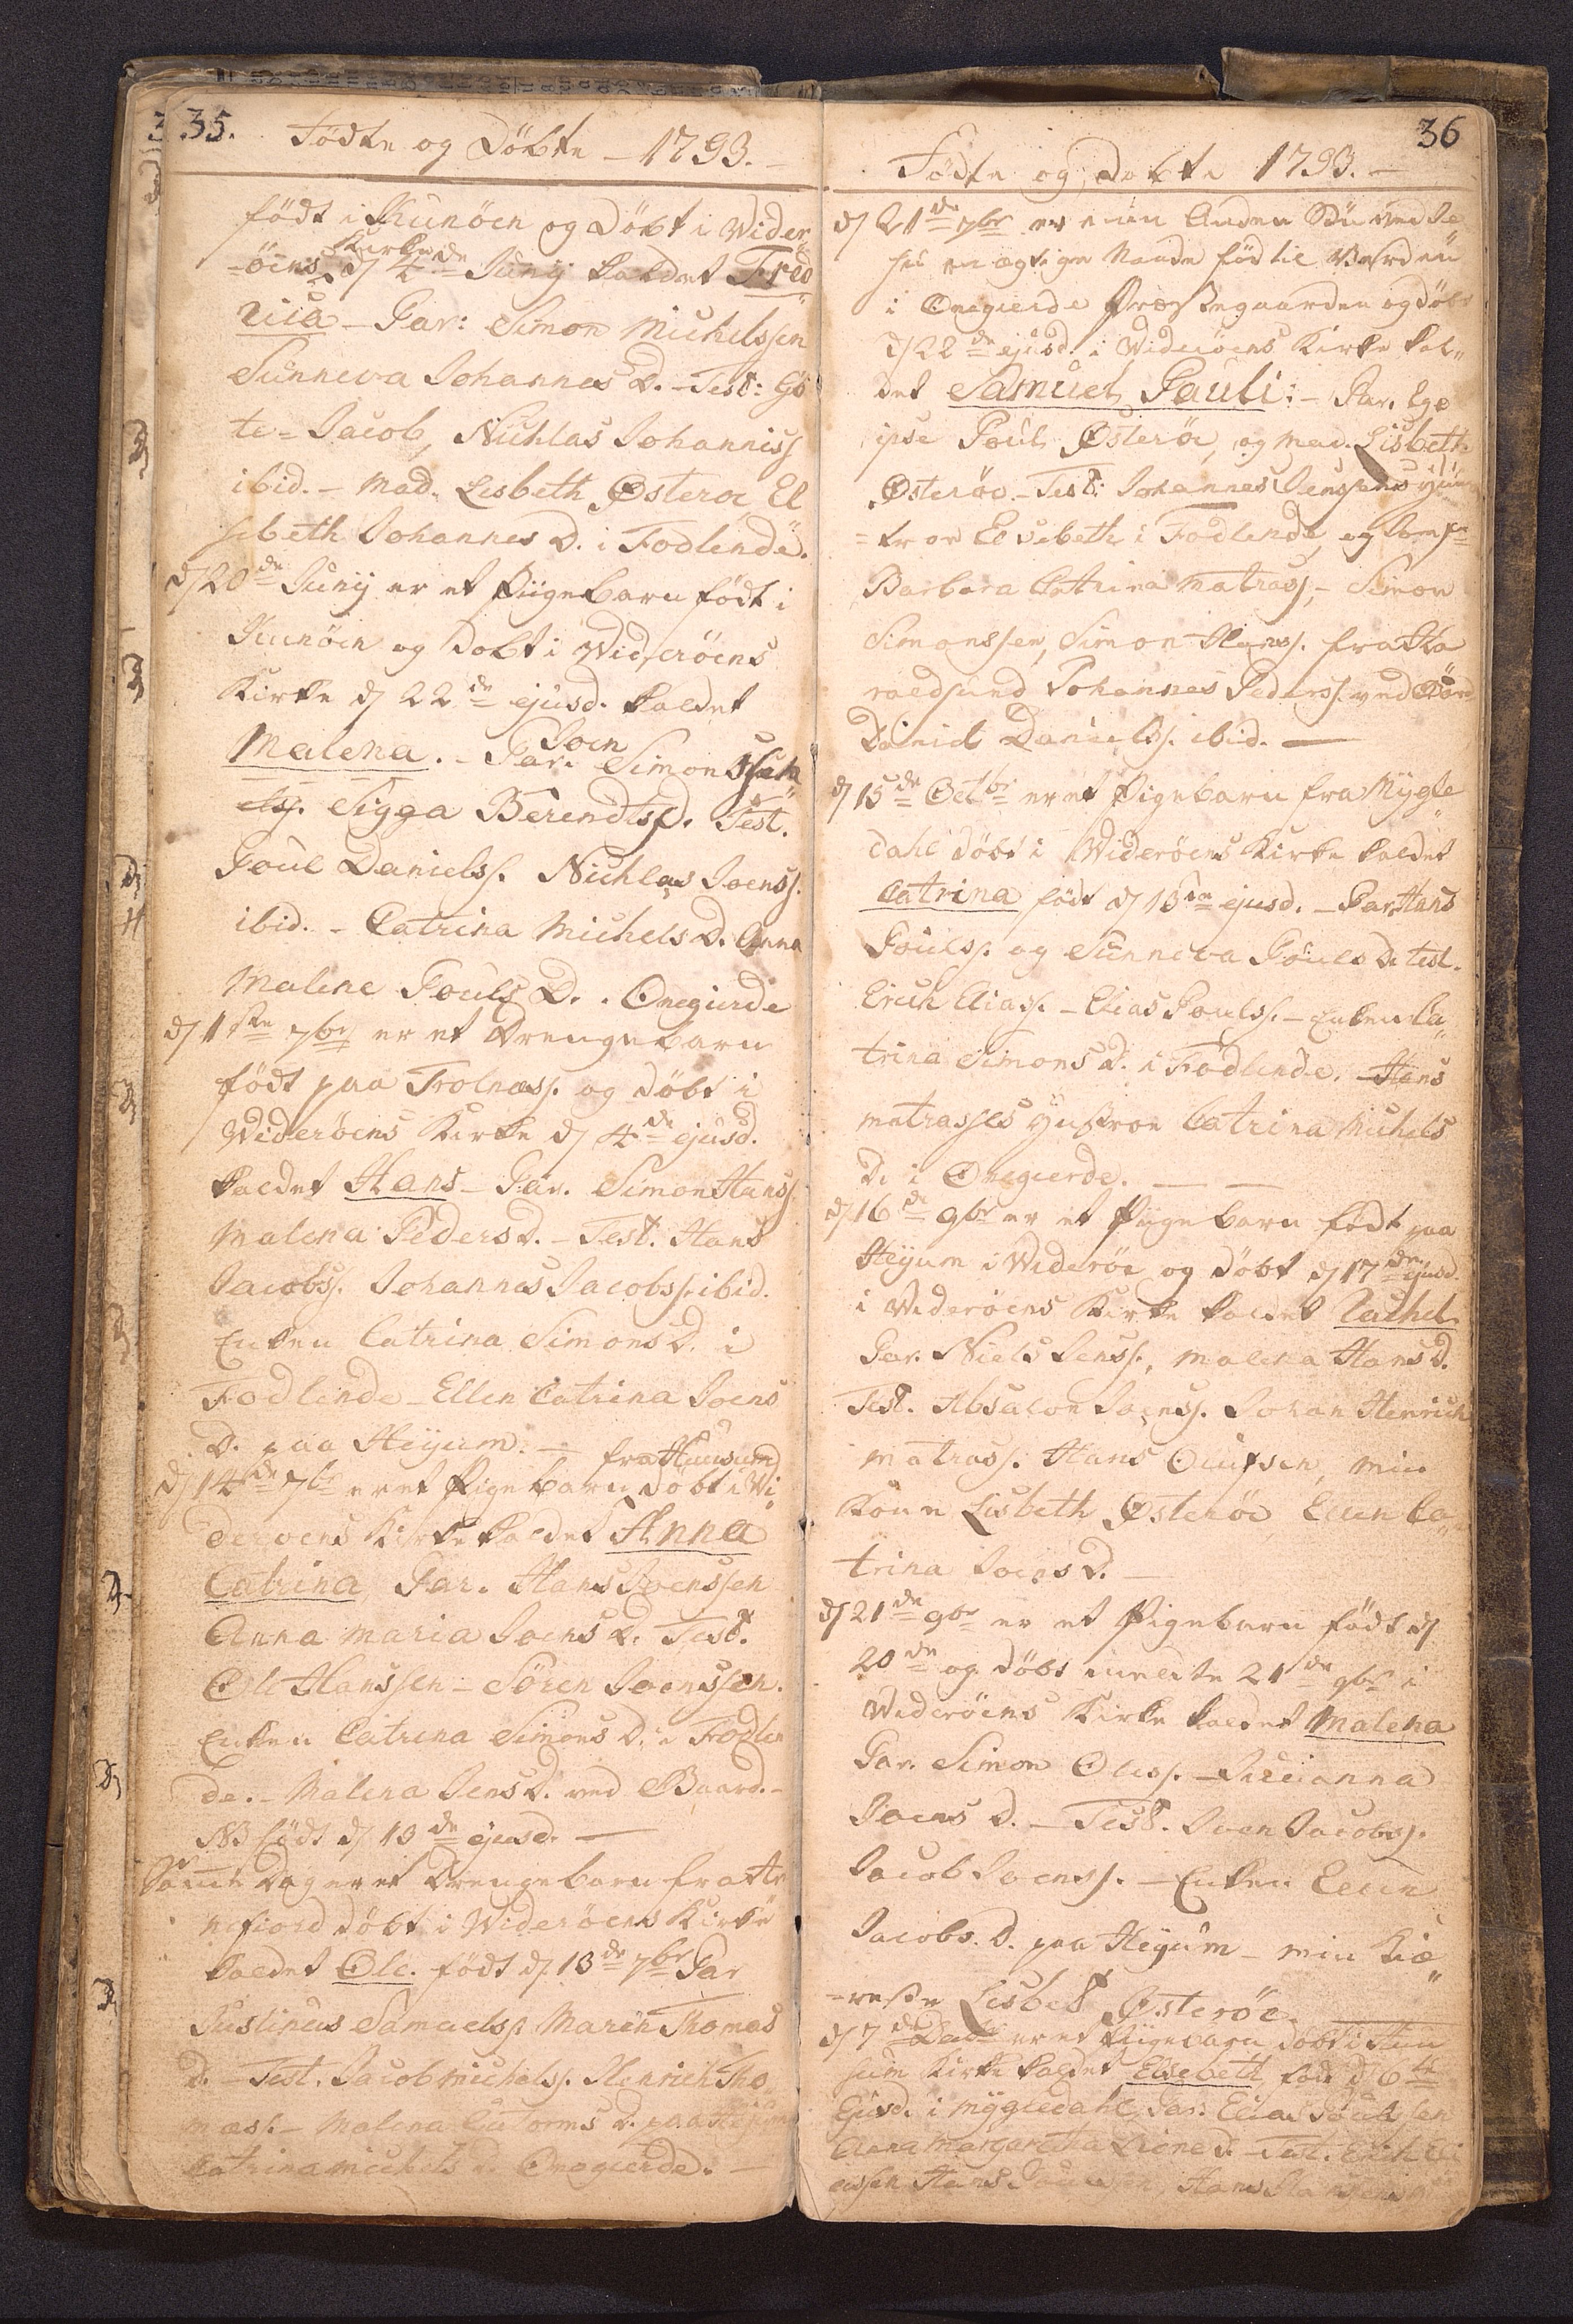 35. Födte og Döbte – 1793. –
födt i Kunöen og Döbt i Wider
öens Kirke d 4de Juny kaldet Fred
rica – Par: Simon Michelssen
Sunneva Johannes D. – Test: Gö
te = Jacob, Nichlas Johanniss
ibid. – Mad. Lisbeth Østerøe El
sebeth Johannes D. i Fodlende.
d 20de Juny er et Piigebarn födt i
Kunöen og Dobt i Wideröens
Kirke d 22de ejusd. kaldet
Malena. – Par. Joen Simonssen
Sigga Berendtsd. Test.
Poul Daniels. Nichlas Joenss.
ibid. – Catrina Michels D. Anna
Malene Pouls D. Onegierde
d 1ste 7br er et Drengebarn
födt paa Trolnæs. og döbt i
Widerøens Kirke d 4de ejusd.
kaldet Hans – Par. Simon Hanss
Malena Peders D. – Test. Hans
Jacobs. Johannes Jacobs. ibid.
Enken Catrina Simons D. i
Fodlende – Ellen Catrina Joens
D. paa Heyum. –
d 14de 7br er et Pigebarn fra Huusum döbt i Wi
deröens Kirke kaldet Anna
Catrina Par. Hans Joenssen
Anna Maria Joens D. Test.
Ole Hanssen – Sören Joenssen.
Enken Catrina Simons D. i Fodlen
de. – Malena Jens D. ved Baard. –
NB födt d 13de ejusd. –
Samme Dag er et Drengebarn fra Ar
nefiord döbt i Wideröens Kirke
kaldet Ole. födt d. 13de 7br Par
Justinus Samuels. Maren Thomas
D. – Test. Jacob Michels. Henrich Tho
mas. – Malena Gutorms D. paa Heyum
Catrina Michels D. Onegierde. –
36
Födte og Dobte 1793. –
d 21de 7br er min Anden Sön ved Je
su en ægtige Naade föd til Verden
i Onegierde Præstegaarden og döbt
d 22de ejusd. i Wideröens Kirke kal
det Samuel Pauli: – Par. Ego
ipse Poul Østerøe, og Mad. Lisbeth
Østeröe. – Test. Johannes Jenssens Hu
stroe Elsebeth i Fodlende, og
Barbara Cathrina Matrass, – Simon
Simonssen, Simon Hanss. fra Ha
raldsund Johannes Peders. ved
Daniel Daniels. ibid. –
d 15de Octbr er et Pigebarn fra Mygle
dahl döbt i Wideröens Kirke kaldet
Catrina födt d 13de ejusd. – Par. Hans
Pouls. og Sunneva Pouls D. Test.
Erich Elias. – Elias Pouls. – Enken Ca
trina Simons D. i Fodlende. – Hans
Matrasses Hustroe Catrina Michels
D. i Onegierde. –
d 16de 9br er et Piigebarn födt paa
Heyum i Wideröe og döbt d 17de ejusd.
i Wideröens Kirke kaldet Rachel
Par. Niels Jenss., Malena Hans D.
Test. Absalon Joenss. Johan Henrich
Matrass. Hans Olufsen, Min
Kone Lisbeth Østeröe, Ellen Ca
trina Joens D. –
d 21de 9br er et Pigebarn födt d
20de og döbt 21de 9br i
Wideröens Kirke kaldet Malena
Par. Simon Oless. – Julianna
Joens D. – Test. Joen Jacobs.
Jacob Joenss. – Enken Ellen
Jacobs. D. paa Heyum – min Kiæ
reste Lisbet Østeröe.
d 7de Decbr er et Piigebarn döbt i Huu
sum Kirke kaldet Elsebeth föd d 6te
Ejusd. i Mygledahl, Par. Elias Poulssen
Anna Margaretha – Test. Erich Eli
assen Hans Poulssen, Hans